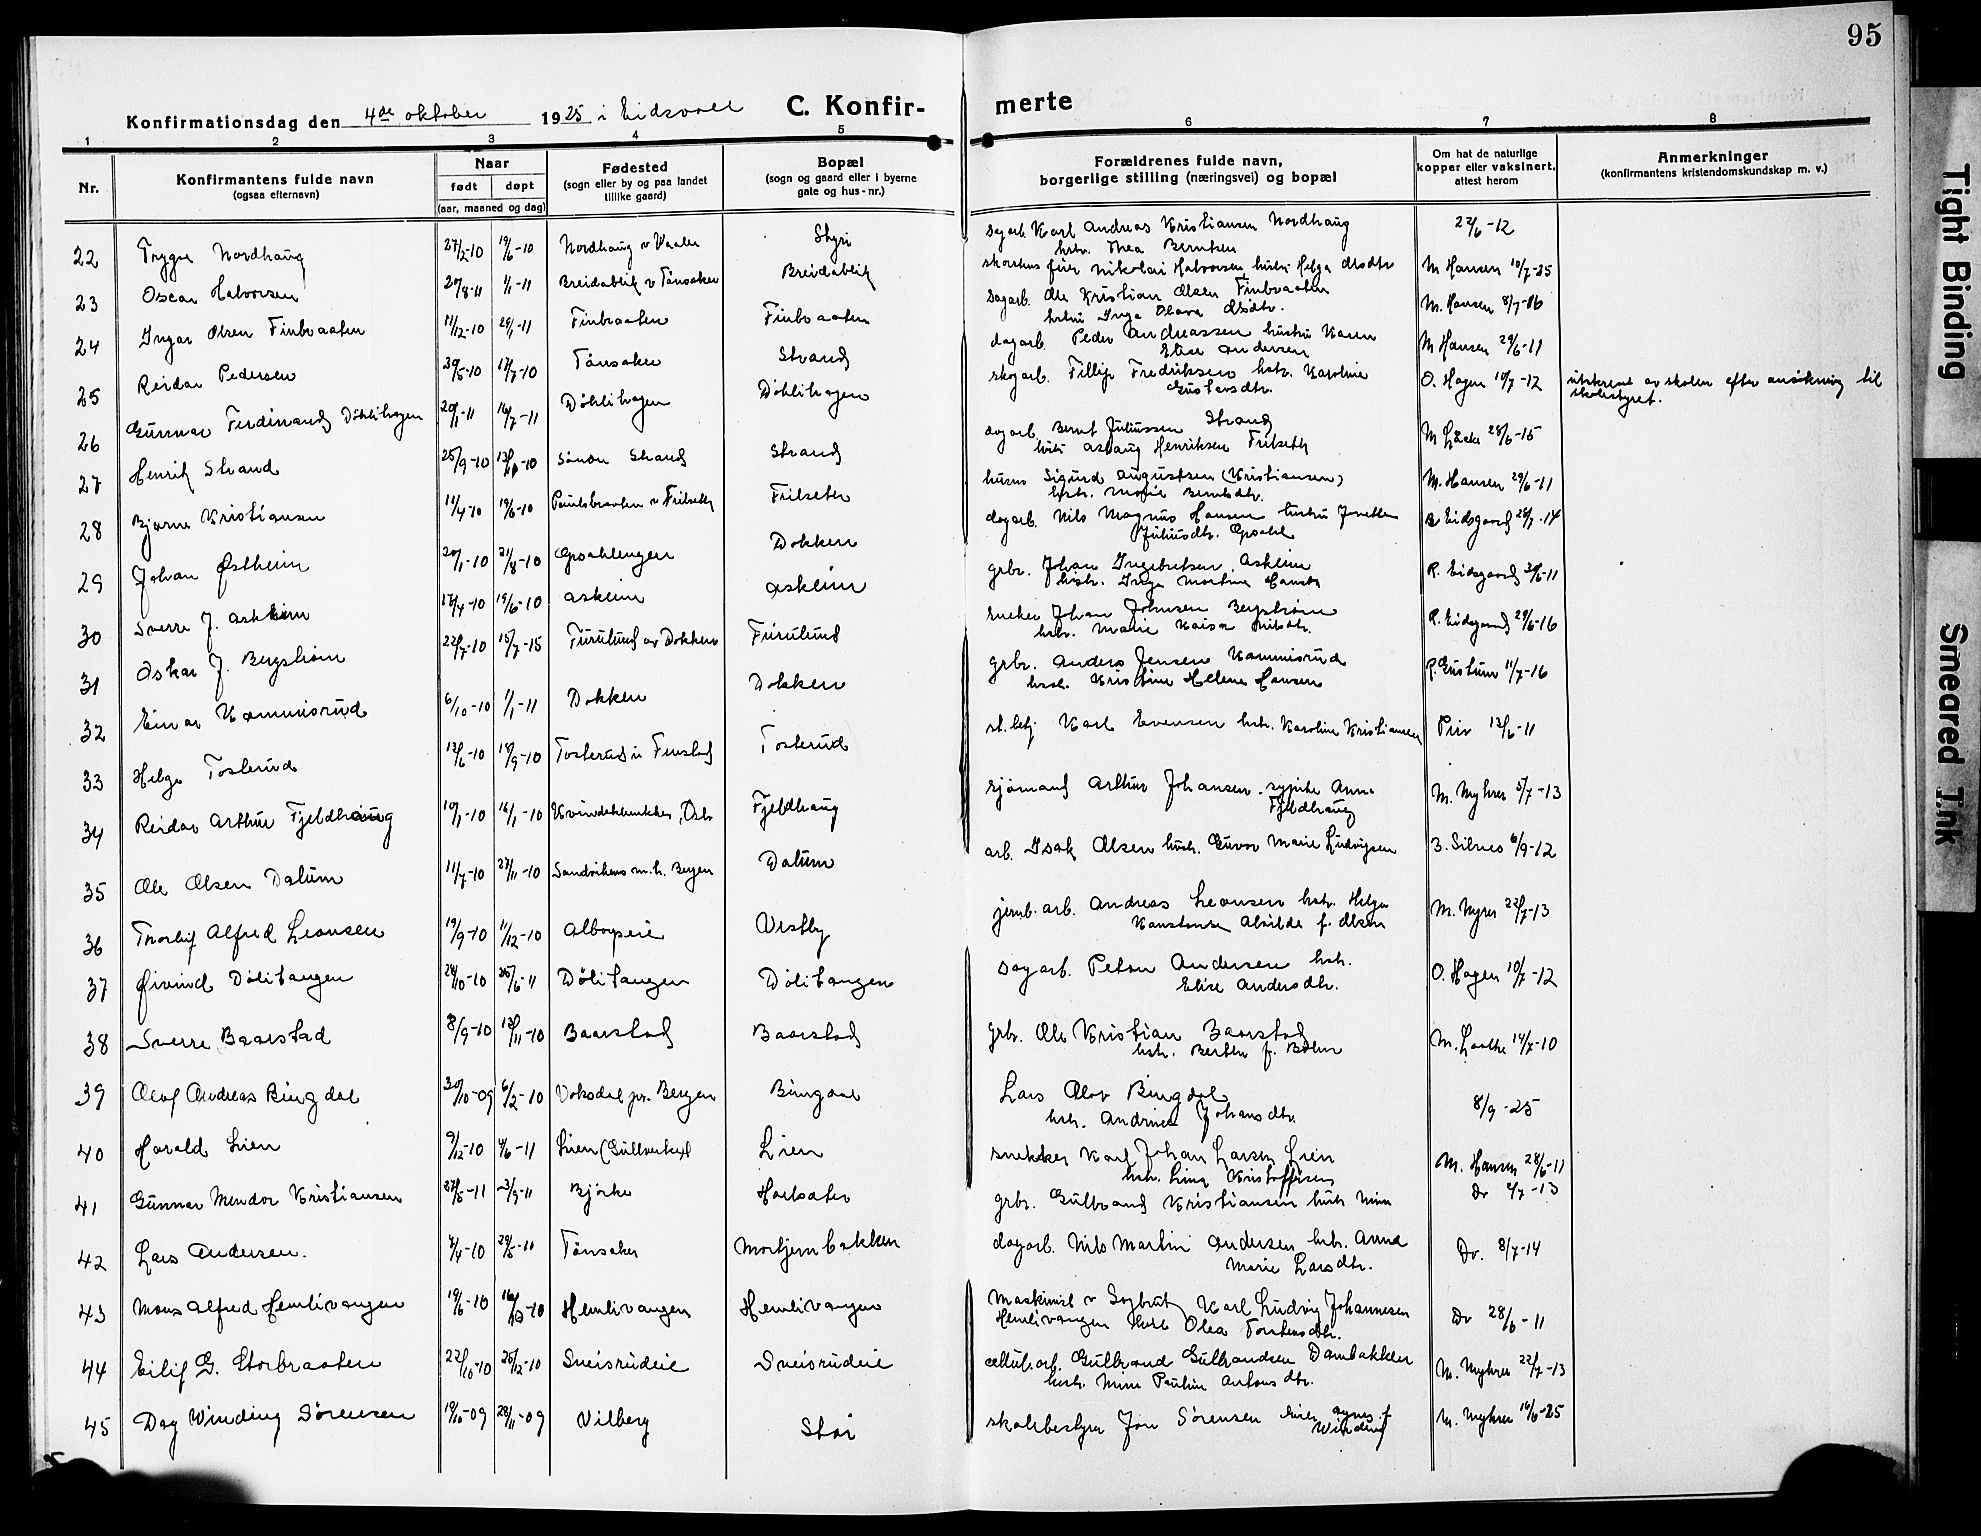 95
Konfirmationsdag den 4de oktober 1925 i Eidsvoll C. Konfir- merte
1 2 3 4 5 6 7 8
Nr.
Konfirmantens fulde navn
(ogsaa efternavn)
Naar
født døpt
(aar, maaned og dag)
Fødested
(sogn eller by og paa landet
tillike gaard)
Bopæl
(sogn og gaard eller i byerne
gate og hus-nr.)
Forældrenes fulde navn,
borgerlige stilling (næringsvei) og bopæl
Om hat de naturlige
kopper eller vaksinert,
attest herom
Anmerkninger
(konfirmantens kristendomskundskap m. v.)
22 Trygve Nordhaug 27/2-10 19/6-10 Nordhaug v Vaalen Styri Dagarb. Karl Andreas Kristiansen Nordhaug 22/6-12
hstr. Thea Berntsen
23 Oscar Halvorsen 20/8-11 1/1-11 Breidablik v Tønsaker Breidablik skorstensfeier Nikolai Halvorsen hustr Helga Olsdtr M Hansen 10/7-25
24 Ingar Olsen Finbraaten 11/12-10 29/1-11 Finbraaten Finbraaten Dagarb. Ole Kristian Olsen Finbraaten M. Hansen 8/7-16
hstru Inga Olava Olsdtr.
25 Reidar Pedersen 30/5-10 17/7-10 Tønsaker Strand dagarb. Peder Andreassen hustru Karen M Hansen 29/6-11
Elise Andersen
26 Gunnar Ferdinand Døhlihagen 20/1-11 16/7-11 Døhlihagen Døhlihagen skogarb. Fillip Fredriksen hstr. Karoline O. Hagen 10/7-12 utskrevet av skolen efter ansøkning til
Gustavsdtr. skolestyret.
27 Henrik Strand 25/9-10 Strand Strand dagarb. Bernt Juliussen Strand 28/6-15
Aslaug Henriksen Frilseth
28 Bjarne Kristiansen 11/4-10 19/6-10 Paulsbraaten v Frilseth Frilseth Sigurd Augustsen (Kristiansen) M. Hansen 29/6-11
hstr. Marie Berntsdtr.
29 Johan Østheim 20/1-10 21/8-10 Gpsahlengen Dokken dagarb. Nils Magnus Hansen hustru Jonetta Eidsgaard 28/7-14
Juliusdtr.
30 Sverre J. Askheim 17/4-10 19/6-10 Askeim Askeim grbr. Johan Ingebretsen Askeim R. Eidsgaard
hstr. Inga Martine
31 Oskar J. Bergstrøm 22/7-10 15/7-15 Furulund av Dokken Furulund sneker Johan Johnsen Bergstrøm R. Eidsgaard 29/6-16
hstr. Marie Kaisa Nilsdtr.
32 Einar Kammisrud 6/10-10 1/1-11 Dokken Dokken grbr. Anders Jensen Kammisrud 11/7-16
hstr. Kristine Helene Hansen
33 Helge Tosterud 12/6-10 18/9-10 Tosterud Finstad Tosterud st. betj Karl Evensen hstr. Karoline Kristiansen Priv 12/6-11
34 Reidar Arthur Fjeldhaug 10/1-10 16/1-10 Kvindeklinikken, Oslo Fjeldhaug sjømand Arthur Johansen. sypike Anna M. Myhrer 5/7-13
Fjeldhaug
35 Ole Olsen Dalum 11/7-10 27/11-10 Sandvikens m. h. Bergen Dalum arb. Isak Olsen hustr. Guvor Marie Ludvigsen B. Silnes 6/9-12
36 Thorleif Alfred Leonsen 19/9-10 11/12-10 Alboyseie Vestby jernb. arb. Andreas Leonsen hstr. Helga M. Myrer 22/7-13
Konstanse Alvilde f. Olsen
37 Øivind Dølitangen 24/10-10 25/6-11 Dølitangen Dølitangen Dagarb. Petter Andersen hstr. O. Hagen 10/7-12
Elise Andersdtr.
38 Sverre Baarstad 8/9-10 13/11-10 Baarstad Baarstad grbr. Ole Kristian Baarstad M. 14/7-10
hstr. Berthe f. Bøhn
39 Olaf Andreas Bingdal 30/10-09 6/2-10 Voksdal pr. Bergen Bingdal Lars Olav Bingdal 8/9-25
hstr. Andrine Johansdtr.
40 Harald Lien 9/12-10 4/6-11 Lien (Gullverket) Lien snekker Karl Johan Larsen Lien M. Hansen 28/6-11
hstr. Lina Kristoffersen
41 Gunnar Mendor Kristiansen 27/5-11 3/9-11 Bjørke Holtsæter grbr. Gulbrand Kristiansen hustr Mina Do 4/7-13
42 Lars Andersen. 4/4-10 29/5-10 Tønsaker Mortjernbakken dagarb. Nils Martin Andersen hstr. Anna Do. 8/7-14
Marie Larsdtr.
43 Mons Alfred Hemlivangen 19/6-10 16/10-10 Hemlivangen Hemlivangen Maskinist v Sagbruk Karl Ludvig Johannesen Do 28/6-11
Hemlivangen Hust Olea Torstensdtr.
44 Eilif G. Storbraaten 22/10-10 25/12-10 Sneisrudeie Sneisrudeie cellul. arb. Gulbrand Gulbrandsen Dambakken M. Myhrer 22/7-13
hstr. Mina Pauline Antonsdtr.
45 Dag Winding Sørensen 19/10-09 28/11-09 Vilberg Stai skolebestyrer Jon Sørensen Agnes f. M. Myhrer 16/6-25
Winding
Tight Binding
Smeared Ink